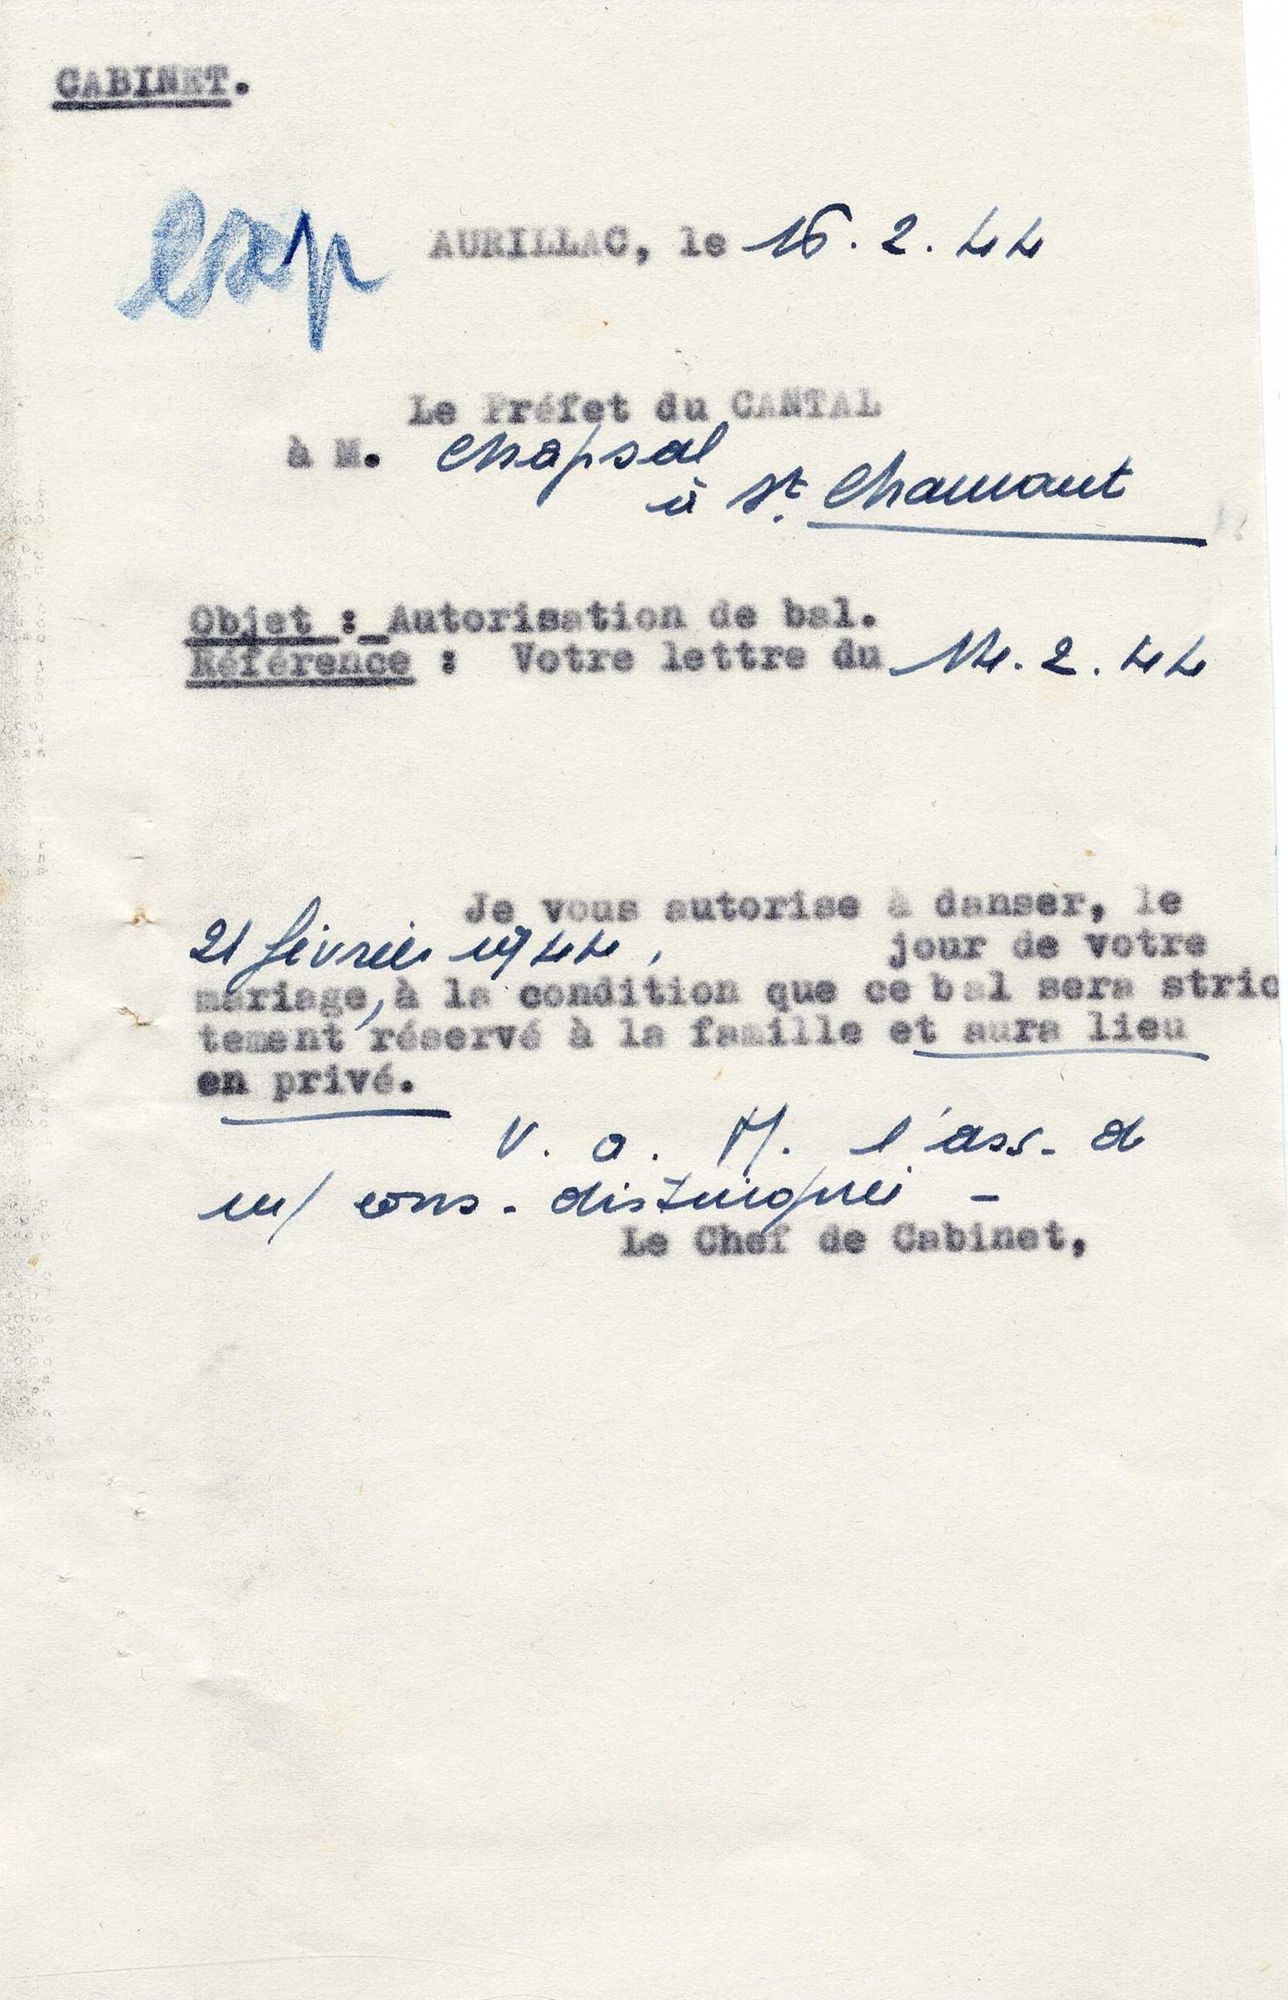 CABINET.
exp
AURILLAC, le 16. 2. 44
Le Préfet du CANTAL
à M. Chapsal
à St. Chamant
Objet : Autorisation de bal.
Référence : Votre lettre du 14. 2. 44
Je vous autorise à danser, le
21 février 1944, jour de votre
mariage, à la condition que ce bal sera stric
tement réservé à la famille et aura lieu
en privé.
V. a. M. l'ass. d
m/ cons. distinguée -
Le Chef de Cabinet,